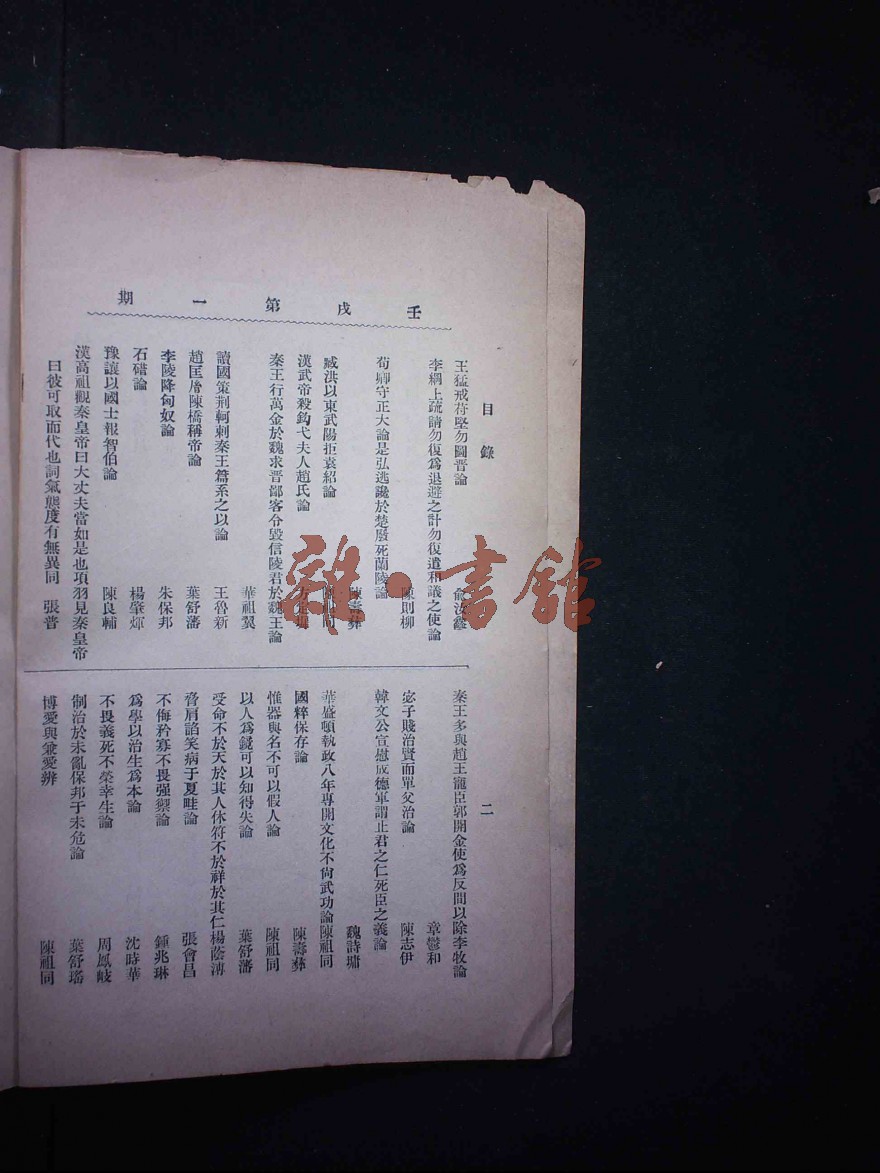 壬戌第一期
目錄
二
王猛戒苻堅勿圖晉論
李綱上疏請勿復爲退避之計勿復遣和議之使論
陳則柳
荀卿守正大論是弘逃讒於楚廢死蘭陵論
臧洪以東武陽拒袁紹論 陳壽彝
漢武帝殺鈎弋夫人趙氏論
秦王行萬金於魏求晉鄙客令毀信陵君於魏王論
華祖翼
讀國策荆軻刺秦王篇系之以論 王魯新
趙匡胤陳橋稱帝論 葉舒藩
李陵降匈奴論 朱保邦
石碏論 楊肇煇
豫讓以國士報智伯論 陳良輔
漢高祖觀秦皇帝曰大丈夫當如是也項羽見秦皇帝
曰彼可取而代也詞氣態度有無異同 張普
秦王多與趙王寵臣郭開金使爲反間以除李牧論
章鬱和
宓子賤治賢而單父治論 陳志伊
韓文公宣慰成德軍謂止君之仁死臣之義論
魏詩墉
華盛頓執政八年專開文化不尙武功論 陳祖同
國粹保存論 陳壽彝
惟器與名不可以假人論 陳祖同
以人爲鏡可以知得失論 葉舒藩
受命不於天於其人休符不於祥於其仁 楊蔭溥
脅肩諂笑病于夏畦論 張會昌
不侮矜寡不畏强禦論 鍾兆琳
爲學以治生爲本論 沈時華
不畏義死不榮幸生論 周鳳岐
制治於未亂保邦于未危論 葉舒瑤
博愛與兼愛辨 陳祖同
雜·書館